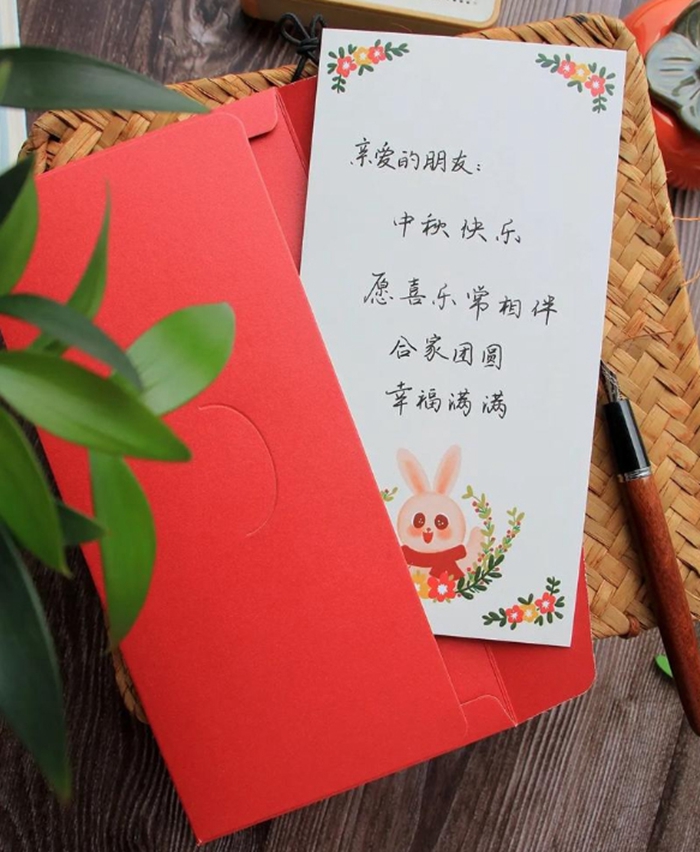 亲爱的朋友：
中秋快乐
愿喜乐常相伴
合家团圆
幸福满满